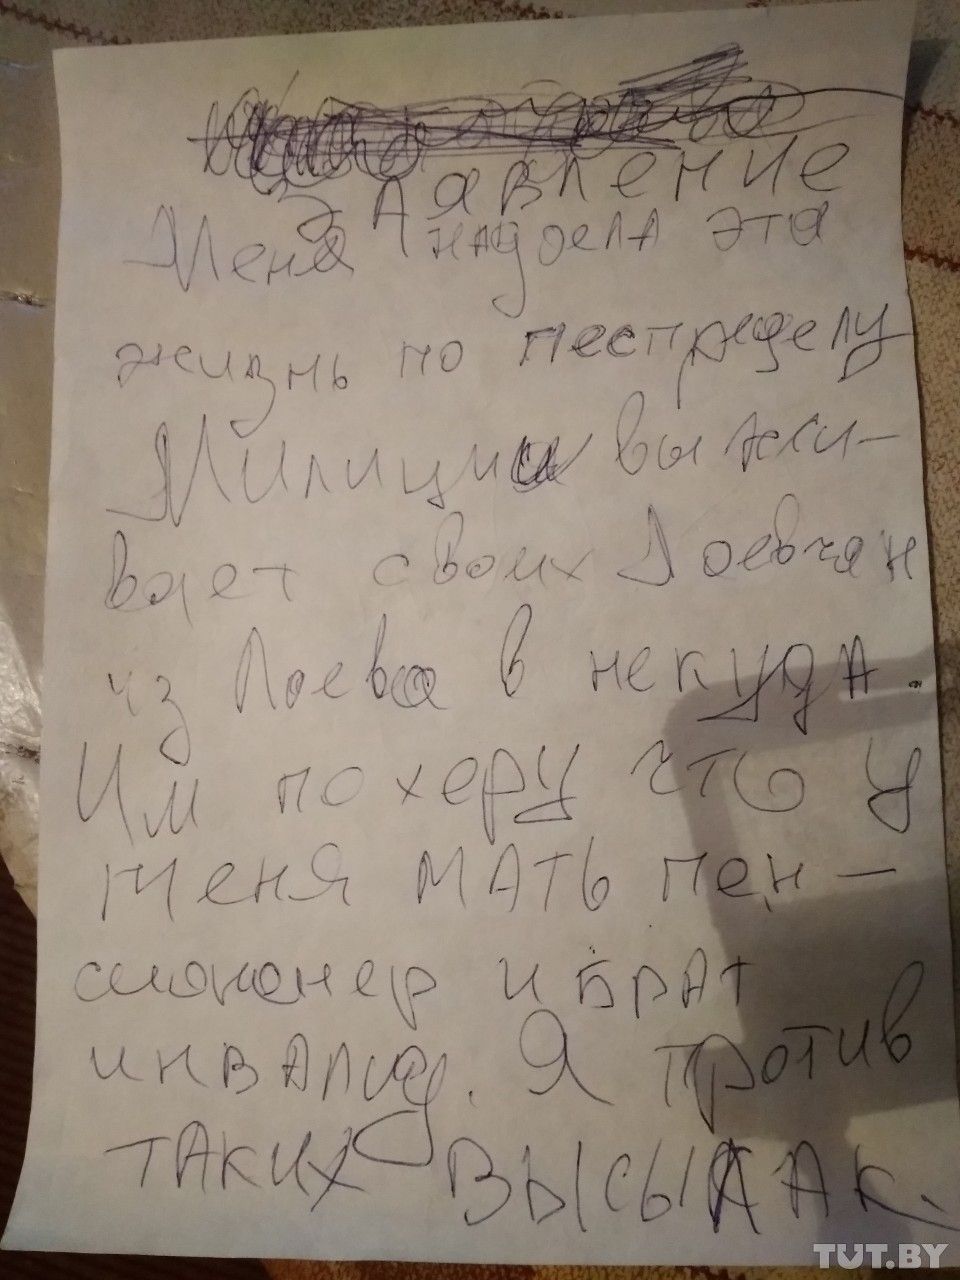 Заявление
Меня надоела эта
жизнь по песпределу
Милиция выжи-
вает своих Лоевчан
из Лоева в некуда.
Им похеру что у
меня мать пен-
сионер и брат
инвалид. Я против
таких высылак.
TUT.BY